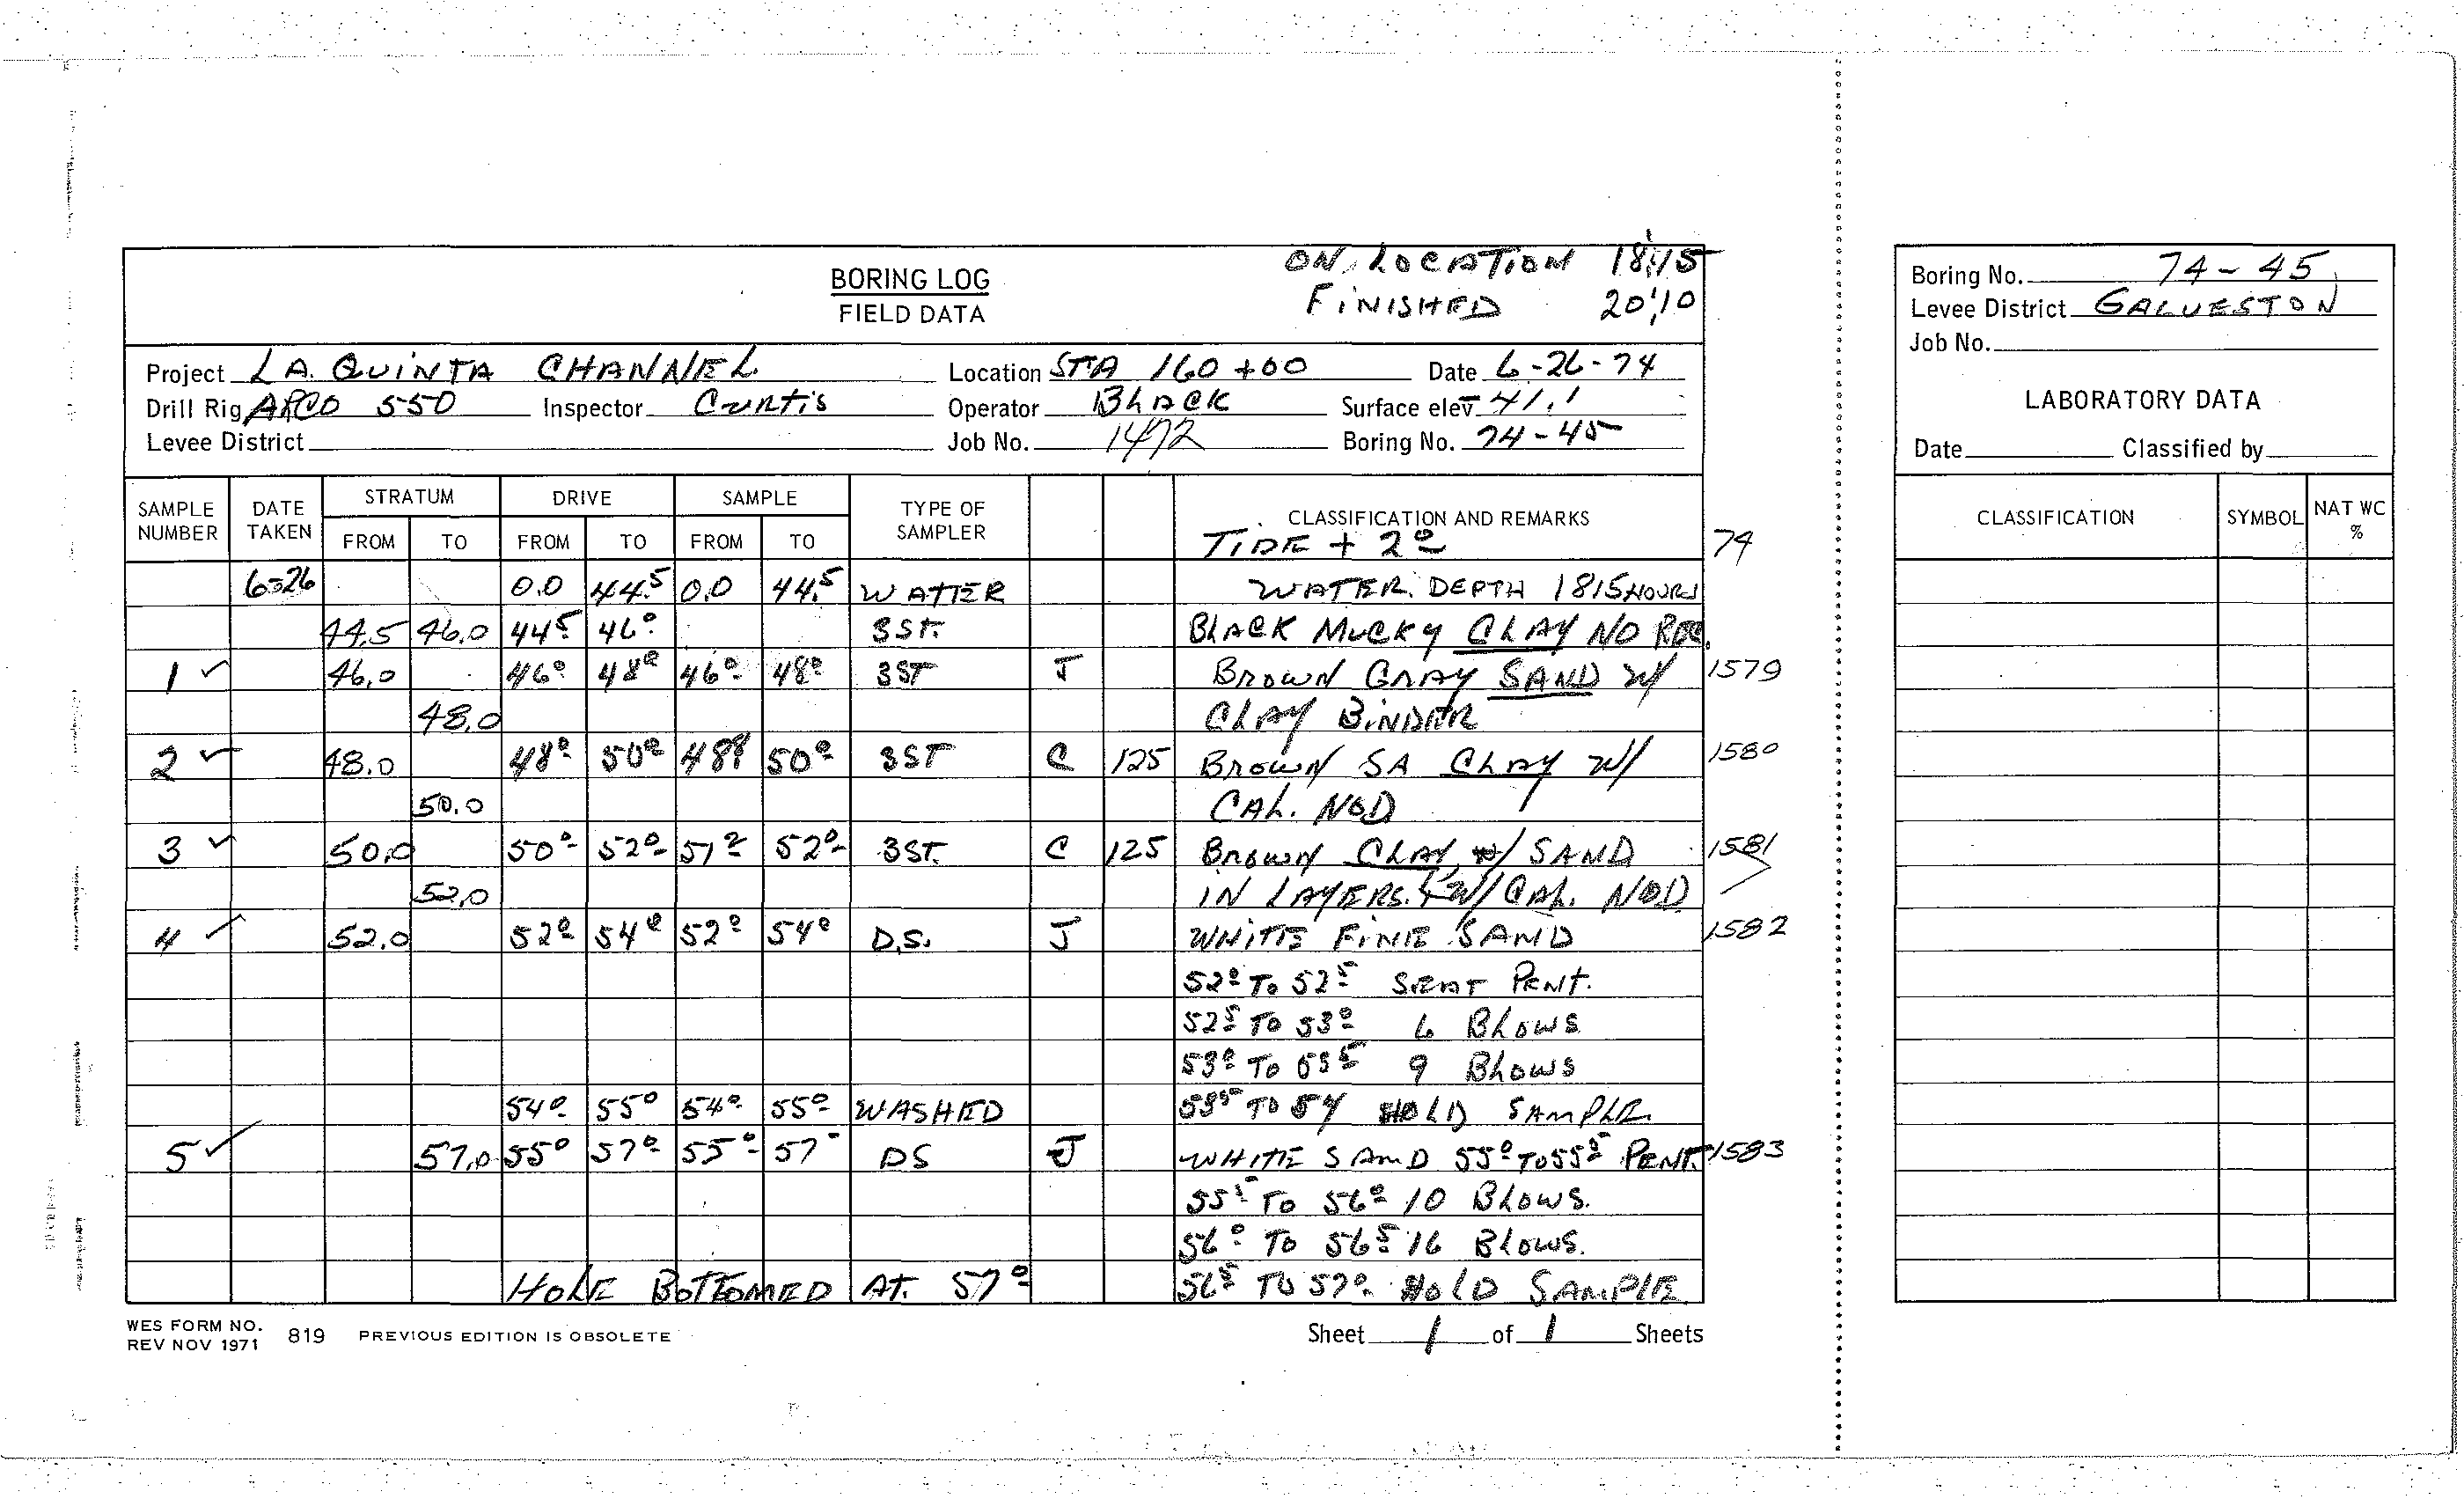 ON LOCATION 18:15
BORING LOG
FIELD DATA
FINISHED 20:10
Project LA. QUINTA CHANNEL Location STA 160+00 Date 6-26-74
Drill Rig ARCO 550 Inspector CURTIS Operator BLACK Surface elev. 41.1
Levee District Job No. 1472 Boring No. 74-45
SAMPLE NUMBER DATE TAKEN STRATUM FROM TO DRIVE FROM TO SAMPLE FROM TO TYPE OF SAMPLER CLASSIFICATION AND REMARKS
TIDE + 2.0 74
6-26 0.0 44.5 0.0 44.5 WATTER WATER DEPTH 1815 HOURS
44.5 46.0 44.5 46.0 3ST. BLACK MUCKY CLAY NO REC.
1 ✓ 46.0 46.0 48.0 46.0 48.0 3ST J BROWN GRAY SAND W/ 1579
48.0 CLAY BINDER
2 ✓ 48.0 48.0 50.0 48.0 50.0 3ST C 125 BROWN SA CLAY W/ 1580
50.0 CAL. NOD
3 ✓ 50.0 50.0 52.0 51.2 52.0 3ST. C 125 BROWN CLAY W/ SAND 1581
52.0 IN LAYERS. & W/ CAL. NOD
4 ✓ 52.0 52.0 54.0 52.0 54.0 D.S. J WHITE FINE SAND 1582
52.0 TO 52.5 SEAT PENT.
52.5 TO 53.0 6 BLOWS
53.0 TO 53.5 9 BLOWS
54.0 55.0 54.0 55.0 WASHED 53.5 TO 54 HOLD SAMPLE
5 ✓ 57.0 55.0 57.0 55.0 57- DS J WHITE SAND 55.0 TO 55.5 PENT. 1583
55.5 TO 56.0 10 BLOWS.
56.0 TO 56.5 16 BLOWS.
HOLE BOTTOMED AT. 57.0 56.5 TO 57.0 HOLD SAMPLE
WES FORM NO. 819
REV NOV 1971
PREVIOUS EDITION IS OBSOLETE
Sheet 1 of 1 Sheets
Boring No. 74-45
Levee District GALVESTON
Job No.
LABORATORY DATA
Date Classified by
CLASSIFICATION SYMBOL NAT WC %